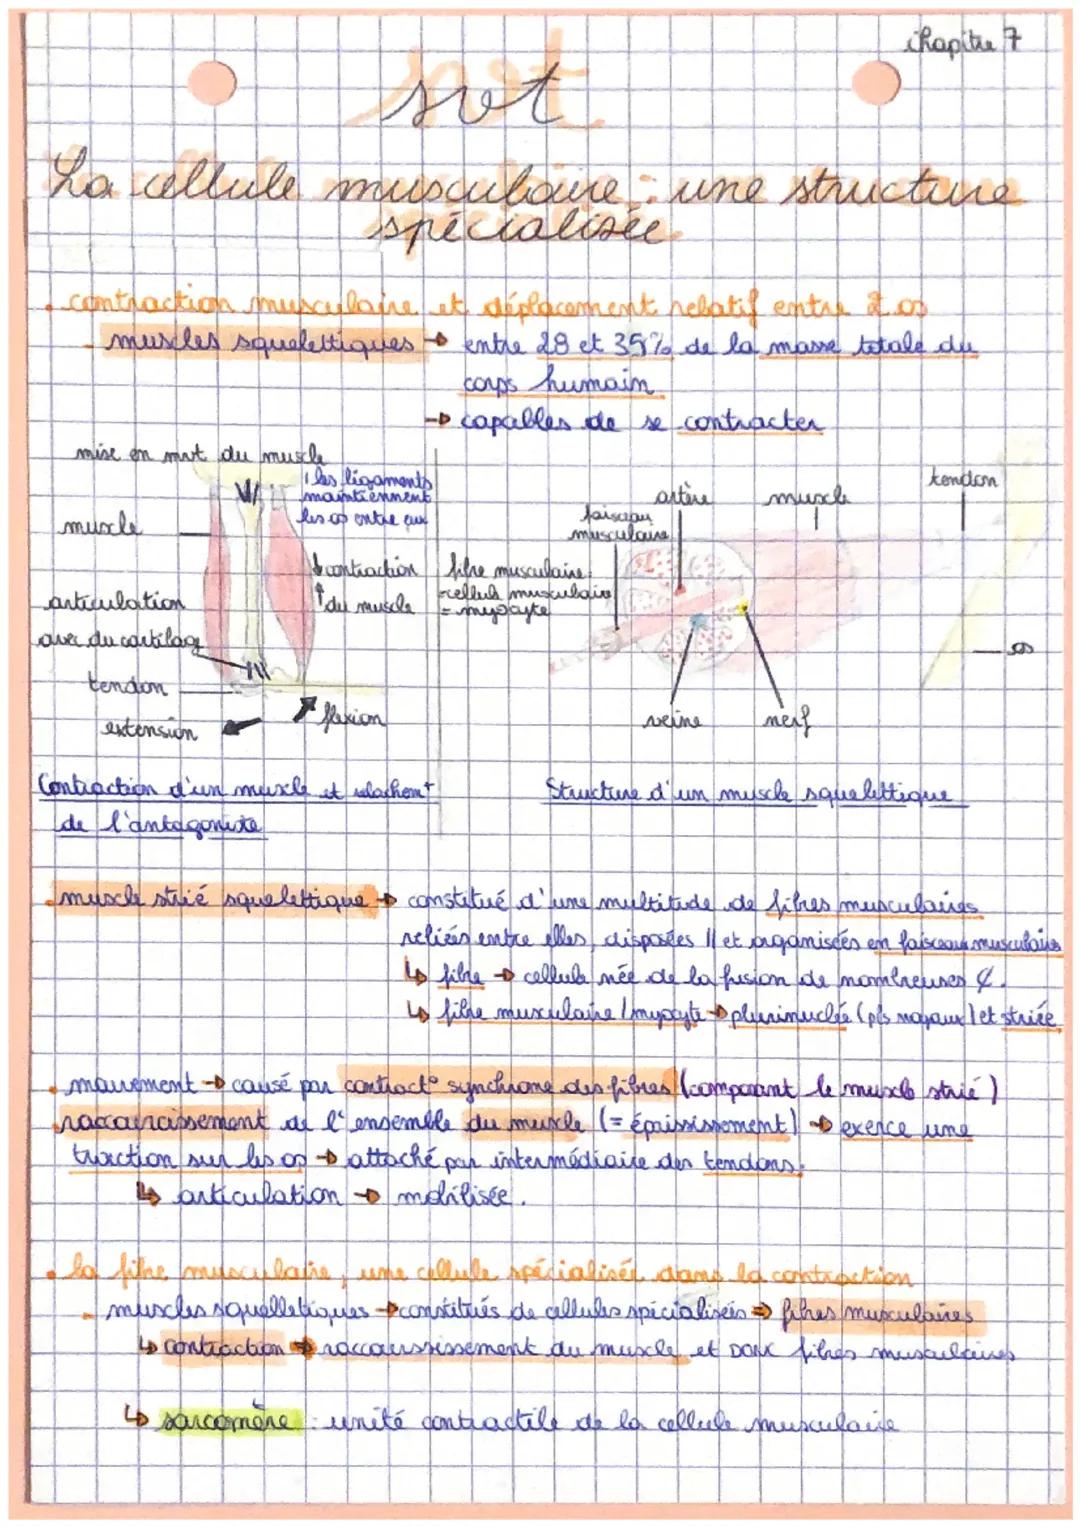 chapitre 7
svt
La cellule musculaire : une structure
spécialisée
. contraction musculaire et déplacement relatif entre 2 os
- muscles squelettiques → entre 28 et 35% de la masse totale du
corps humain
→ capables de se contracter
mise en mvt du muscle
les ligaments
maintiennent
les os entre eux
muscle
contraction
du muscle
articulation
avec du cartilage
tendon
extension
flexion
Contraction d'un muscle et relachemt
de l'antagoniste
artère
muscle
tendon
faisceau
musculaire
fibre musculaire
=cellule musculaire
= myocyte
os
veine
nerf
Structure d'un muscle squelettique
. muscle strié squelettique → constitué d'une multitude de fibres musculaires
reliées entre elles, disposées // et organisées en faisceaux musculaires
↳ fibre → cellule née de la fusion de nombreuses ¢.
↳ fibre musculaire / myocyte → plurinuclée (pls noyaux) et striée
. mouvement → causé par contract° synchrone des fibres (composant le muscle strié)
raccourcissement de l'ensemble du muscle (= épaississement) → exerce une
traction sur les os → attaché par intermédiaire des tendons.
↳ articulation → mobilisée.
. la fibre musculaire, une cellule spécialisée dans la contraction
- muscles squelletiques → constitués de cellules spécialisées ⇒ fibres musculaires
↳ contraction → raccourssissement du muscle et DONC fibres musculaires
↳ sarcomère : unité contractile de la cellule musculaire